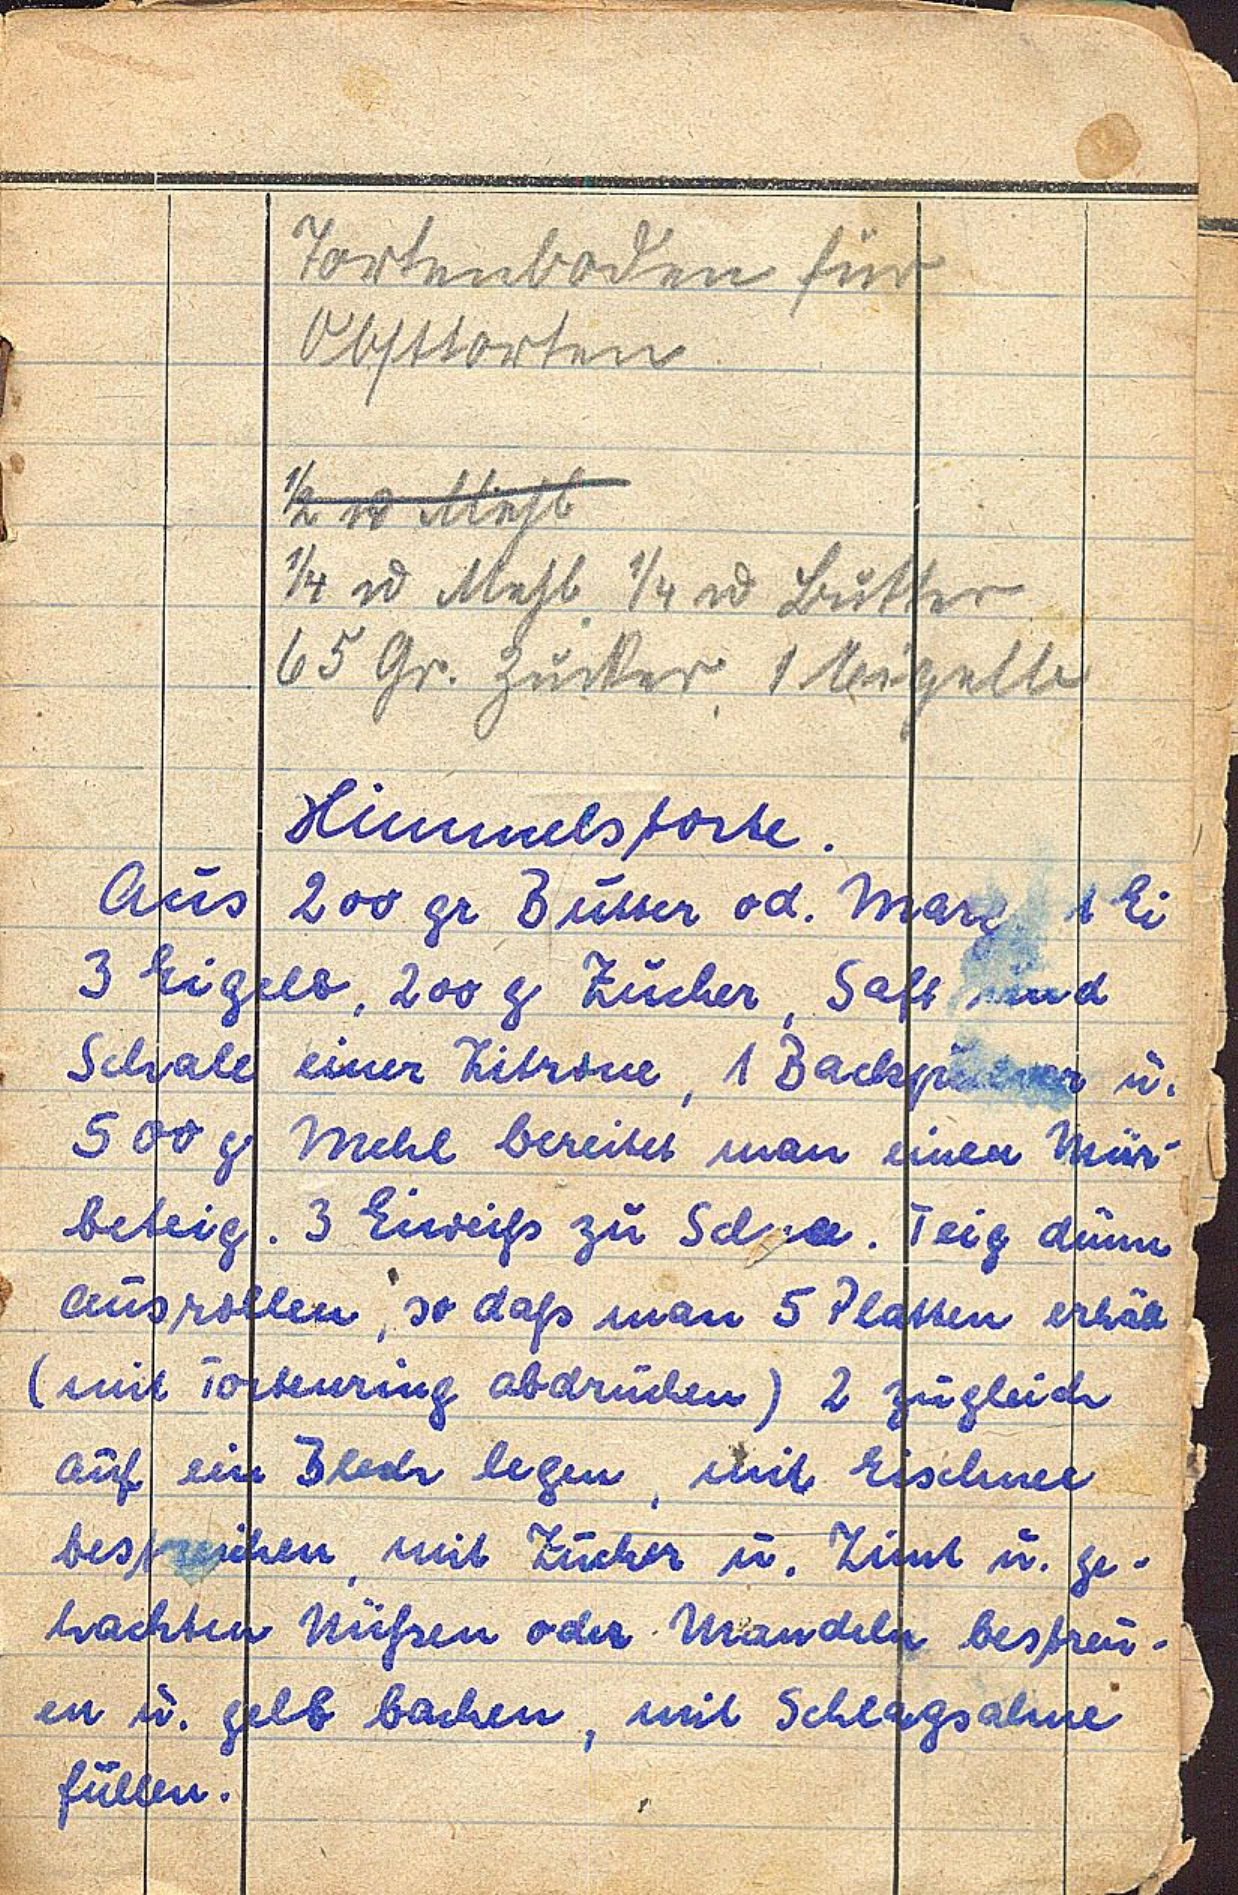 Tortenboden für
Obsttorten
½ ℔ Mehl
¼ ℔ Mehl ¼ ℔ Butter
65 Gr. Zucker, 1 Eigelb
Himmelstorte.
Aus 200 gr Butter od. Marg 1 Ei
3 Eigelb, 200 g Zucker, Saft und
Schale einer Zitrone, 1 Backpulver u.
500 g Mehl bereitet man einen Mür-
beteig. 3 Eiweiß zu Schnee. Teig dünn
ausrollen, so daß man 5 Platten erhält
(mit Tortenring abdrücken) 2 zugleich
auf ein Blech legen, mit Eischnee
bestreichen, mit Zucker u. Zimt u. ge-
hackten Nüßen oder Mandeln bestreu-
en u. gelb backen, mit Schlagsahne
füllen.